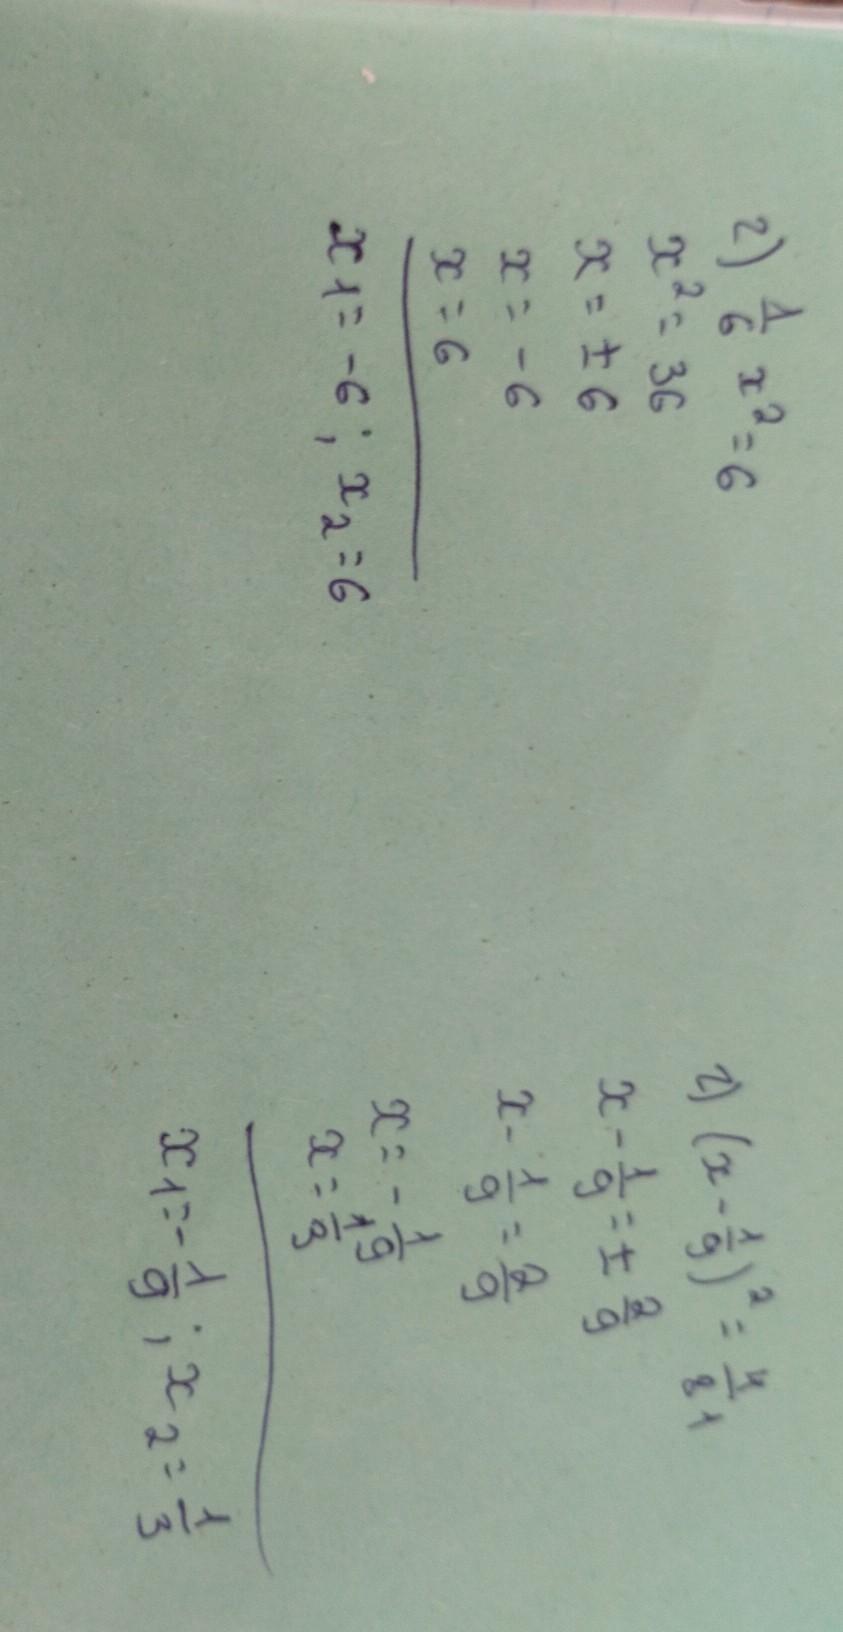 г) 1/6 x² = 6
x² = 36
x = ± 6
x = - 6
x = 6
x1 = -6; x2 = 6
г) (x - 1/9)² = 4/81
x - 1/9 = ± 2/9
x - 1/9 = 2/9
x = - 1/9
x = 1/3
x1 = - 1/9; x2 = 1/3